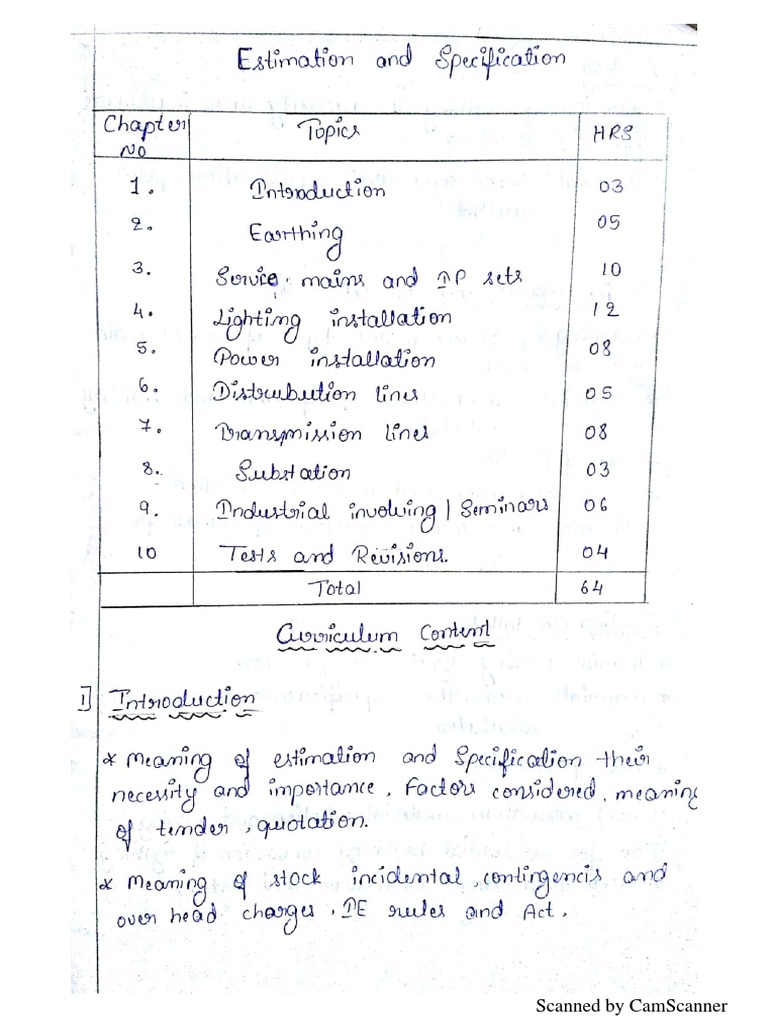 Estimation and Specification
Chapter No Topics HRS
1. Introduction 03
2. Earthing 05
3. Service mains and IP sets 10
4. Lighting installation 12
5. Power installation 08
6. Distrubution lines 05
7. Transmission lines 08
8. Substation 03
9. Industrial involving / Seminars 06
10 Tests and Revisions. 04
Total 64
Curriculum Content
1] Introduction
* Meaning of estimation and Specification their
necessity and importance, Factors considered, meaning
of tender, quotation.
* Meaning of stock incidental contingencis and
over head charges, IE rules and Act.
Scanned by CamScanner